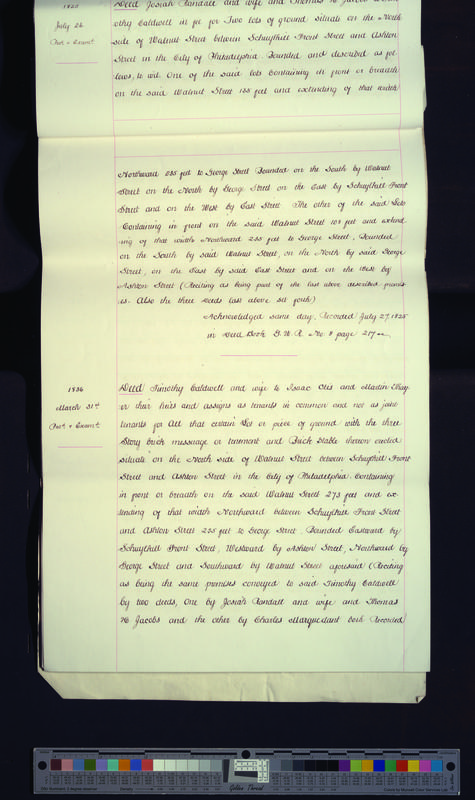 1825
July 26
Deed Josiah Randall and wife and Thomas H Jacobs
othy Caldwell in fee for Two lots of ground situate on the North
side of Walnut Street between Schuylkill Front Street and Ashton
Street in the City of Philadelphia. Bounded and described as fol
lows, to wit. One of the said lots Containing in front or breadth
on the said Walnut Street 155 feet and extending of that width
Northward 255 feet to George Street Bounded on the South by Walnut
Street on the North by George Street on the East by Schuylkill Front
Street and on the West by East Street The other of the said Lots
Containing in front on the said Walnut Street 108 feet and extend
ing of that width Northward 255 feet to George Street, Bounded
on the South by said Walnut Street, on the North by said George
Street, on the East by said East Street and on the West by
Ashton Street (Reciting as being part of the last above described premis
es. Also the three deeds last above set forth)
Acknowledged same day, Recorded July 27, 1825
in Deed Book G.W.R. No. 8 page 217 &c.
1836
March 31st
Deed Timothy Caldwell and wife to Isaac Otis and Martin Thay
er their heirs and assigns as tenants in common and not as joint
tenants for All that certain Lot or piece of ground with the three
Story brick message or tenement and Brick Stable thereon erected
situate on the North side of Walnut Street between Schuylkill Front
Street and Ashton Street in the City of Philadelphia. Containing
in front or breadth on the said Walnut Street 273 feet and ex-
tending of that width Northward between Schuylkill Front Street
and Ashton Street 255 feet to George Street. Bounded Eastward by
Schuylkill Front Street, Westward by Ashton Street, Northward by
George Street and Southward by Walnut Street aforesaid (Reciting
as being the same premises conveyed to said Timothy Caldwell
by two deeds, One by Josiah Randall and wife and Thomas
H Jacobs and the other by Charles Marquedant both Recorded